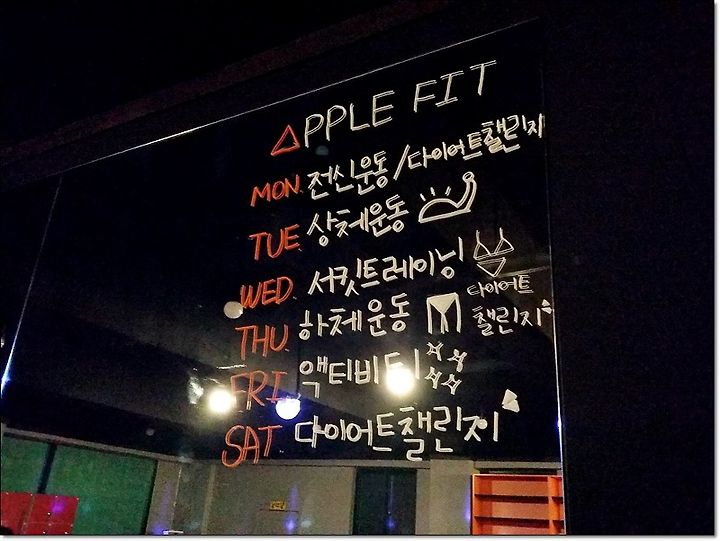 APPLE FIT
MON. 전신운동/다이어트챌린지
TUE 상체운동
WED. 서킷트레이닝
THU. 하체운동 다이어트
챌린지
FRI 액티비티
SAT 다이어트챌린지